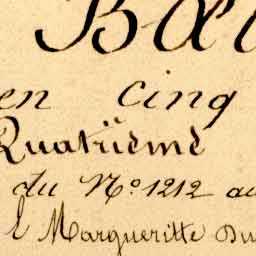 en cinq
Quatrième
du No. 1212 au
E Margueritte Du